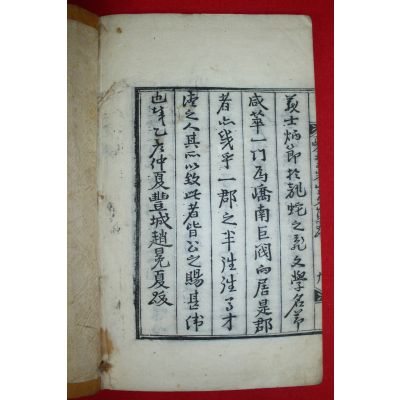 義士炳節於龍蛇之亂文學名節
咸華一門爲嶠南巨閥向居是郡
者亦幾乎一郡之半往往多才
德之人其所以致此者皆公之賜甚偉
也哉乙亥仲夏豐城趙冕夏跋